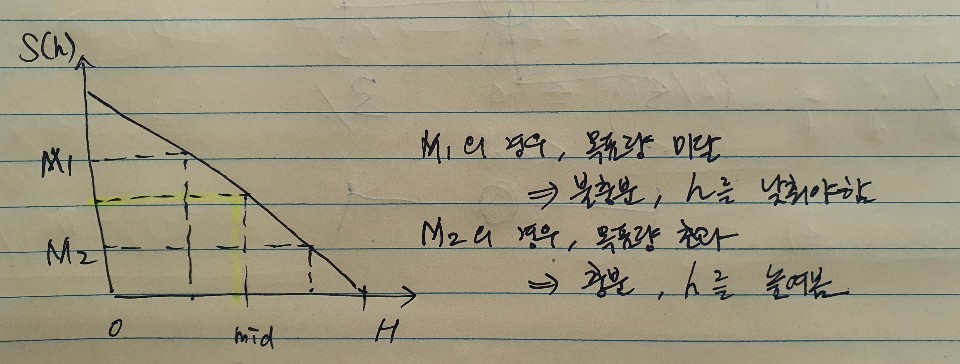 S(h)
M1
M2
0
mid
H
M1의 경우, 목표량 미달
⇒ 불충분, h를 낮춰야함
M2의 경우, 목표량 초과
⇒ 충분, h를 높여봄